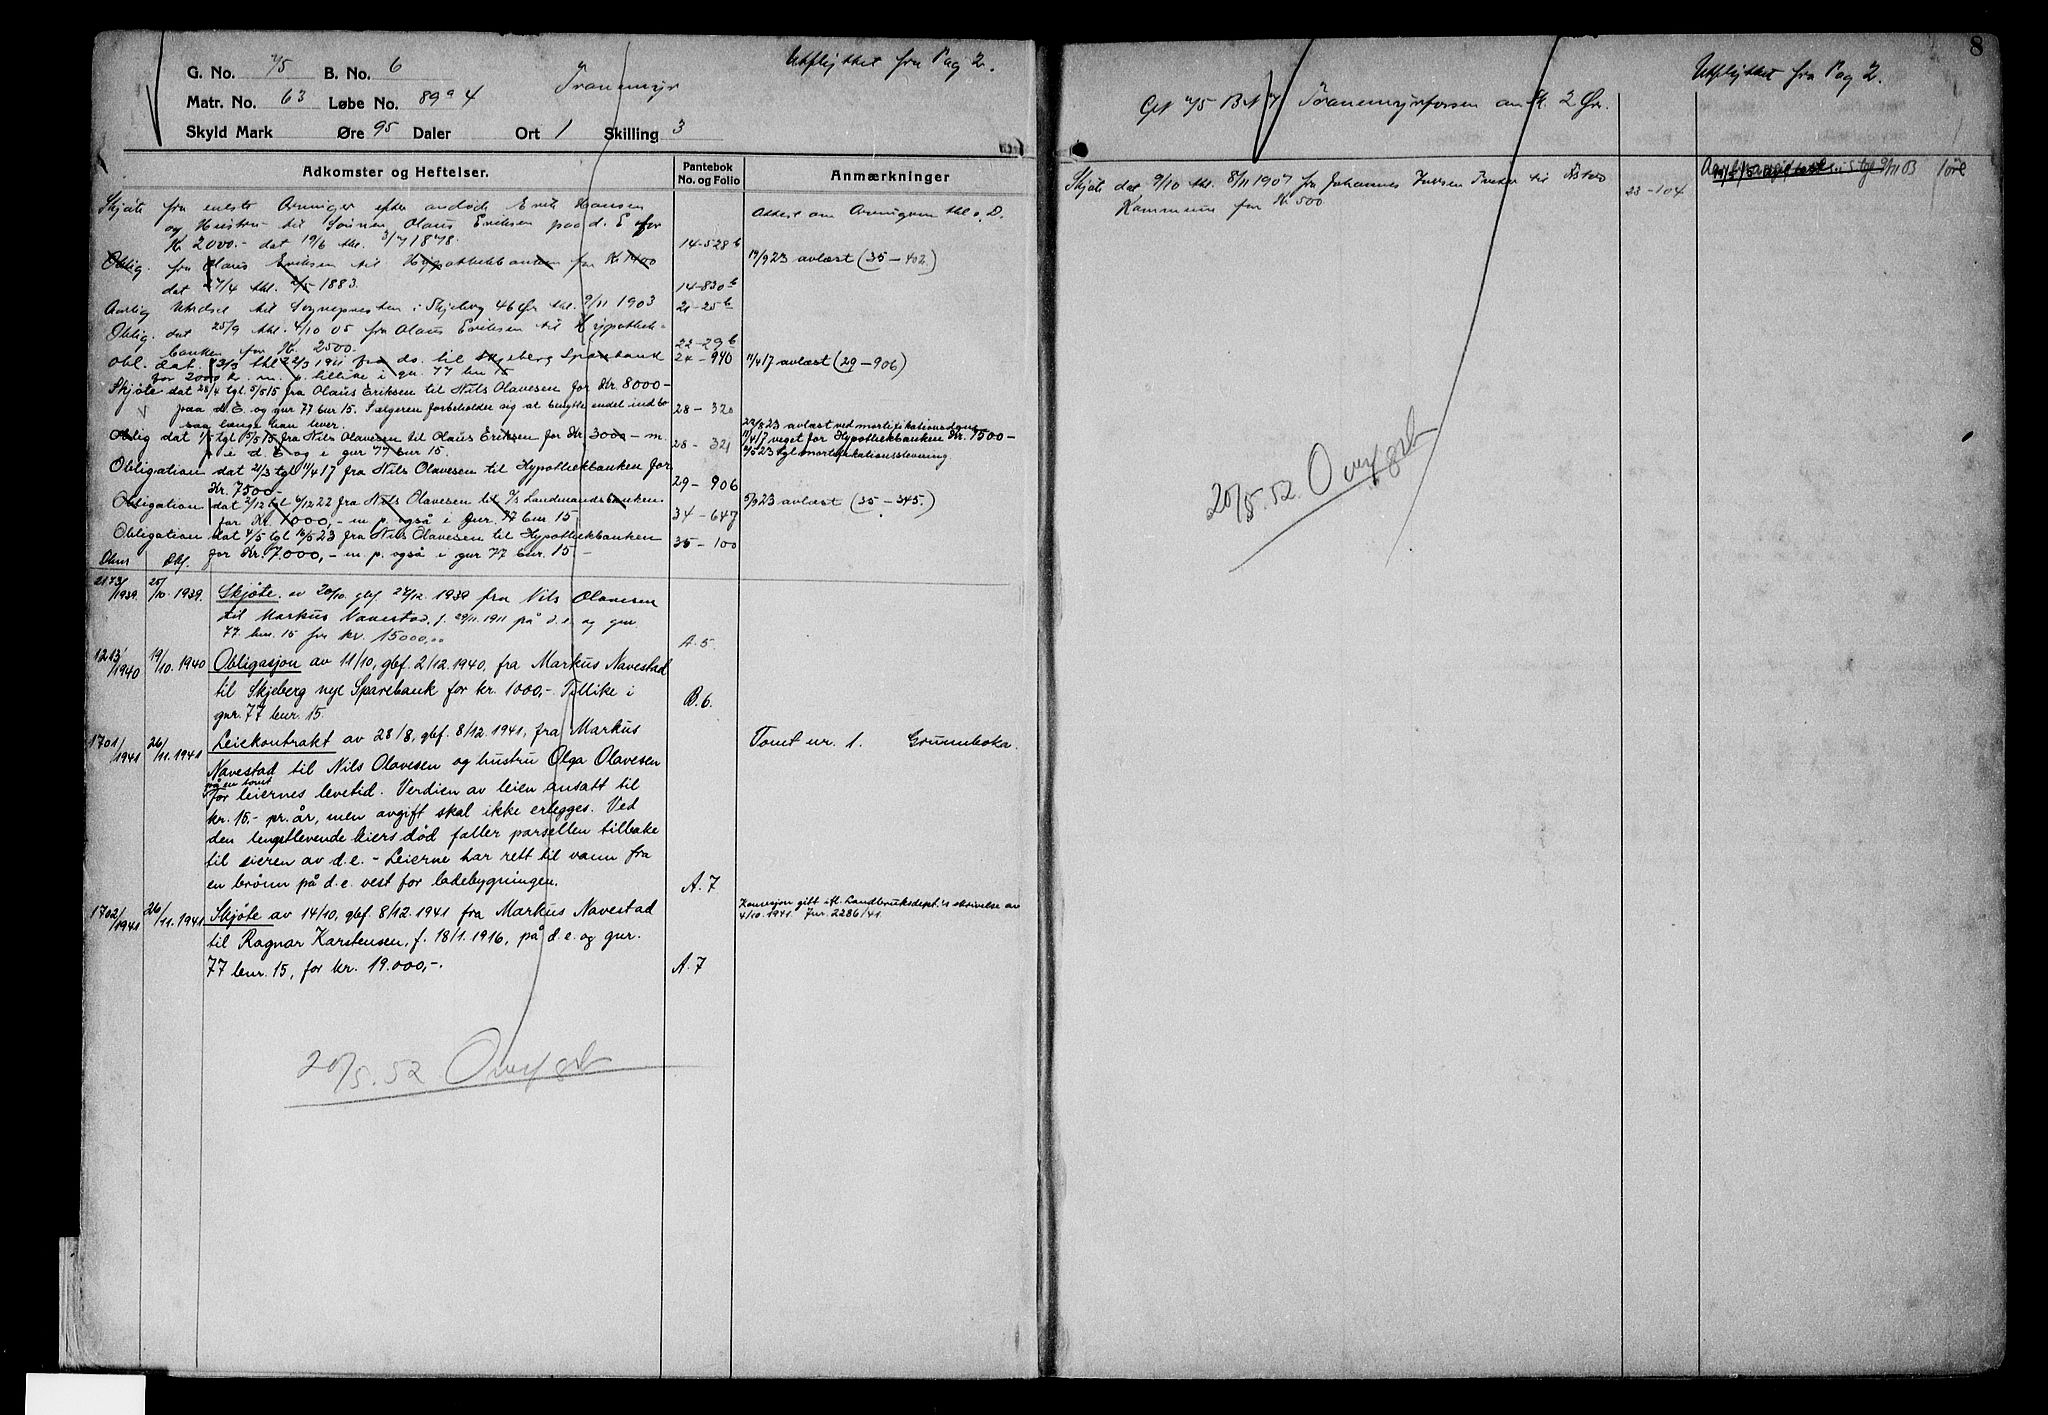 8
Utflyttet fra Pag 2.
G. No. 75 B. No. 6
Tranemyr
Matr. No. 63 Løbe No. 89a 4
Skyld Mark Øre 95 Daler Ort 1 Skilling 3
Adkomster og Heftelser.
Pantebok No. og Folio
Anmærkninger
Skjøte fra eneste Arvinger efter Erik Hansen
og Hustru til Sønnen Olaus Eriksen paa d. E for
Kr 2000.- dat 19/6 thl. 3/7 1878. 14-528b
Attest om Arvingerne thl. s. D.
Oblig. fra Olaus Eriksen til Hypothekbanken for Kr 1400
dat 27/4 thl. 2/5 1883. 14-830b
19/9 23 avlæst (35-402)
Aarlig Utredsel til Sognepresten i Skjeberg 46 Øre thl. 9/11 1903 21-25b
Oblig. dat 25/9 thl. 4/10 05 fra Olaus Eriksen til Hypothek-
banken for Kr. 2500. 22-29b
obl. dat. 13/3 thl 22/3 1911 fra do. til Skjeberg Sparebank 24-940
for 2000 kr. m. p. tillike i gn. 77 bn 15
11/4 17 avlæst (29-906)
Skjøte dat 28/4 tgl. 5/5 15 fra Olaus Eriksen til Nils Olavesen for Kr. 8000-
paa d. E og gnr 77 bnr 15. Sælgeren forbeholder sig at benytte endel indbo 28-320
saa længe han lever.
Oblig dat 1/5 tgl 5/5 15 fra Nils Olavesen til Olaus Eriksen for Kr. 3000- m.
i d. E og i gnr 77 bnr 15. 28-321
22/8 23 avlæst ved mortifikationsdom
11/4 17 veget for Hypothekbanken Kr. 7500-
tgl mortifikationsstevning
Obligation dat 21/3 tgl 11/4 17 fra Nils Olavesen til Hypothekbanken for
Kr. 7500- 29-906
Obligation dat 2/12 tgl 4/12 22 fra Nils Olavesen til A/S Landmandsbanken
for Kr 1000,- m p. også i gnr. 77 bnr 15 34-647
5/9 23 avlæst (35-345.)
Obligation dat 4/5 tgl 16/5 23 fra Nils Olavesen til Hypothekbanken
for Kr. 7.000,- m p. også i gnr 77 bnr. 15- 35-100
2173/1939. 25/10. 1939. Skjøte av 20/10. gbf 27/12. 1939 fra Nils Olavesen
til Markus Navestad, f. 29/11. 1911 på d. e. og gnr.
77 bnr. 15 for kr. 15000,00 A.5.
1213/1940 19/10. 1940 Obligasjon av 11/10, gbf. 2/12. 1940, fra Markus Navestad
til Skjeberg nye Sparebank for kr. 1000,- Tillike i
gnr. 77 bnr. 15. B.6.
1701/1941 26/11. 1941 Leiekontrakt av 28/8, gbf. 8/12. 1941, fra Markus
Tomt nr. 1. Grunnboka.
Navestad til Nils Olavesen og hustru Olga Olavesen
på en tomt
for leiernes levetid. Verdien av leien ansatt til
kr. 15,- pr. år, men avgift skal ikke erlegges. Ved
den lengstlevende leiers død faller parsellen tilbake
til eieren av d. e. - Leierne har rett til vann fra
en brønn på d. e. vest for ladebygningen. A.7
1702/1941 26/11. 1941 Skjøte av 14/10, gbf. 8/12. 1941 fra Markus Navestad
Konsesjon gitt ifl. Landbruksdept.'s skrivelse av
4/10. 1941. Jnr. 2286/41.
til Ragnar Karstensen, f. 18/1. 1916, på d. e. og gnr.
77 bnr. 15, for kr. 19.000,-. A.7
20/5. 52 Overført
GN 75 BN 7 Tranemyrfossen av Sk. 2 Øre.
Utflyttet fra Pag 2.
Skjøte dat 9/10 thl. 8/11 1907 fra Johannes Iversen til
Kommune for Kr 500 23-104
20/5. 52. Overført